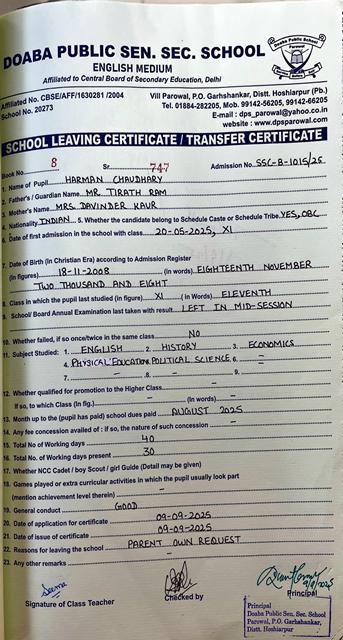 Doaba Public School
Parowal
DOABA PUBLIC SEN. SEC. SCHOOL
ENGLISH MEDIUM
Affiliated to Central Board of Secondary Education, Delhi
Affiliated No. CBSE/AFF/1630281 /2004
School No. 20273
Vill Parowal, P.O. Garhshankar, Distt. Hoshiarpur (Pb.)
Tel. 01884-282205, Mob. 99142-56205, 99142-66205
E-mail : dps_parowal@yahoo.co.in
website : www.dpsparowal.com
SCHOOL LEAVING CERTIFICATE / TRANSFER CERTIFICATE
Book No. 8 Sr. 747 Admission No. SSC-B-1015/25
1. Name of Pupil HARMAN CHAUDHARY
2. Father's / Guardian Name MR. TIRATH RAM
3. Mother's Name MRS. DAVINDER KAUR
4. Nationality INDIAN 5. Whether the candidate belong to Schedule Caste or Schedule Tribe. YES, OBC
6. Date of first admission in the school with class. 20-05-2025, XI
7. Date of Birth (In Christian Era) according to Admission Register
(In figures) 18-11-2008 (in words) EIGHTEENTH NOVEMBER
TWO THOUSAND AND EIGHT
8. Class in which the pupil last studied (in figure) XI ( in Words) ELEVENTH
9. School/ Board Annual Examination last taken with result LEFT IN MID-SESSION
10. Whether failed, if so once/twice in the same class NO
11. Subject Studied: 1. ENGLISH 2. HISTORY 3. ECONOMICS
4. PHYSICAL EDUCATION 5. POLITICAL SCIENCE 6. -
7. - 8. - 9. -
12. Whether qualified for promotion to the Higher Class -
If so, to which Class (In fig.) - (In words) -
13. Month up to the (pupil has paid) school dues paid AUGUST 2025
14. Any fee concession availed of : if so, the nature of such concession -
15. Total No of Working days 40
16. Total No. of Working days present 30
17. Whether NCC Cadet / boy Scout / girl Guide (Detail may be given)
18. Games played or extra curricular activities in which the pupil usually look part
(mention achievement level therein) -
19. General conduct GOOD
20. Date of application for certificate 09-09-2025
21. Date of issue of certificate 09-09-2025
22. Reasons for leaving the school PARENT OWN REQUEST
23. Any other remarks
Seema
Signature of Class Teacher
Checked by
9/9/2025
Principal
Principal
Doaba Public Sen. Sec. School
Parowal, P.O. Garhshankar,
Distt. Hoshiarpur